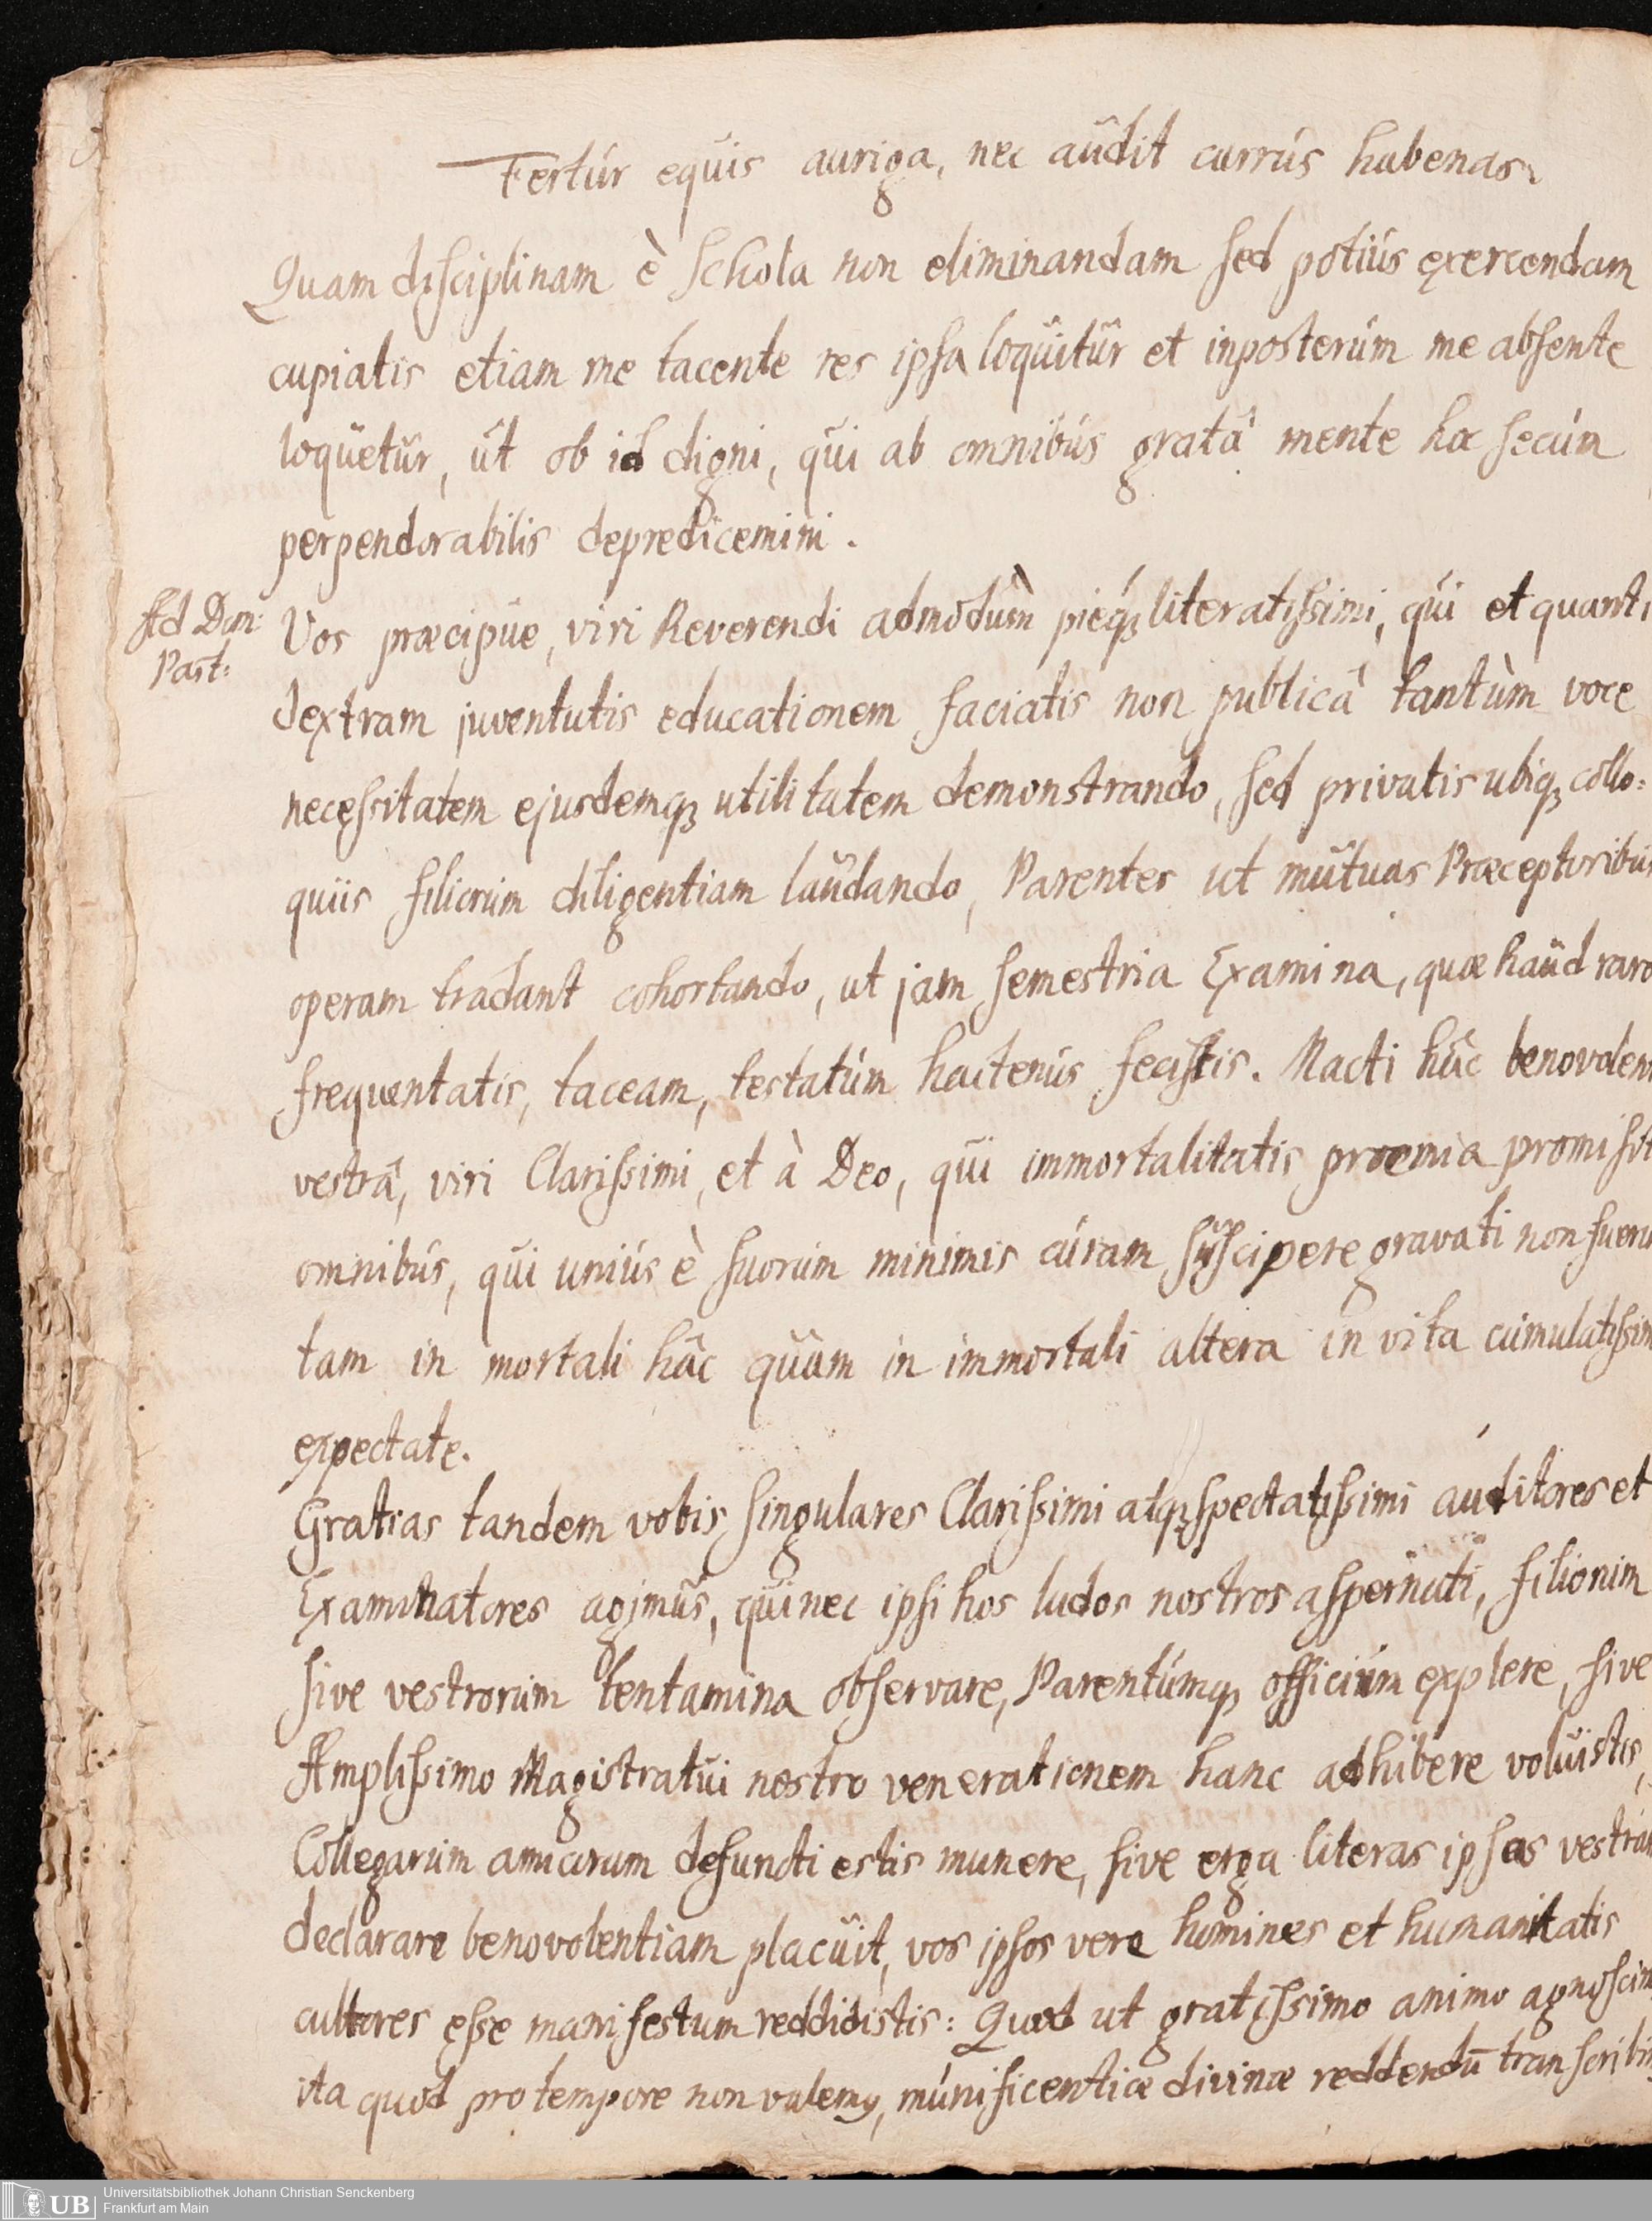 Fertúr equis auriga, nec audit currús habenas.
Quam disciplinam è Schola non eliminandam sed potiús exercendam
cupiatis etiam me tacente res ipsa loquitur et inposterúm me absente
loquetur, ut ob id digni, qui ab omnibús gratâ mente hoc secúm
perpendorabilis depredicemini.
Ad Dnn:
Past:
Vos præcipue, viri Reverendi admodùm pieq́ꝫ literatissimi, qui et quanti
dextram juventutis educationem faciatis non publicâ tantùm voce
necessitatem ejusdemqꝫ utilitatem demonstrando, sed privatis ubiqꝫ collo:
quiis filiorum diligentiam laudando, Parentes ut mutuas Præceptoribus
operam tradant cohortando, ut jam semestria Examina, quæ haud raro
frequentatis, taceam, testatúm hactenús fecistis. Macti hâc benovolen
vestrâ, viri Clarissimi, et à Deo, qui immortalitatis proemia promisit
omnibús, qui uniús è suorum minimis cúram suscipere gravati non fueru
tam in mortali hâc quàm in immortali altera in vita cumulatissim
expectate.
Gratias tandem vobis singulares Clarissimi atqꝫ spectatissimi auditores et
Examinatores agimus, qui nec ipsi hos ludos nostros aspernati, filiorum
sive vestrorum tentamina observare, Parentúmqꝫ officiúm explere, sive
Amplissimo Magistratui nostro venerationem hanc adhibere voluistis,
Collegarum amicorum defuncti estis munere, sive erga literas ipsas vestram
declarare benovolentiam placuit, vos ipsos vere homines et humanitatis
cultores esse manifestum reddidistis: Quod ut gratissimo animo agnoscim
ita quod pro tempore non valemꝰ, múnificentiæ divinæ reddendū transcribim
UB
Universitätsbibliothek Johann Christian Senckenberg
Frankfurt am Main